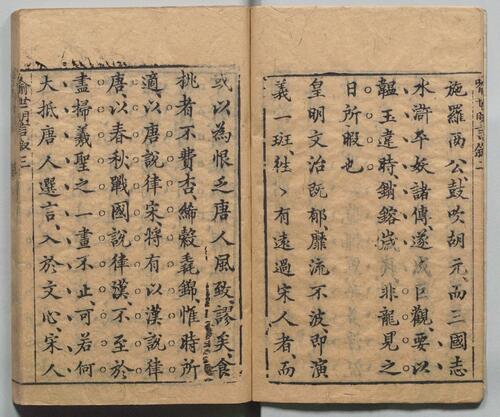 喻世明言叙二
施羅兩公鼓吹胡元而三國志
水滸平妖諸傳遂成巨觀要以
韞玉違時銷鎔歲月非龍見之
日所暇也
皇明文治既郁靡流不波即演
義一斑往〻有遠過宋人者而
或以為恨乏唐人風致謬矣食
桃者不費杏絺縠毳錦惟時所
適以唐說律宋將有以漢說律
唐以春秋戰國說律漢不至於
盡掃羲聖之一畫不止可若何
大抵唐人選言入於文心宋人
喻世明言叙三